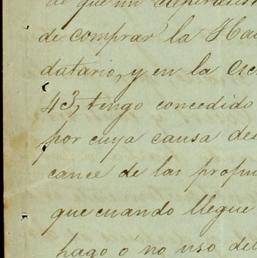 de que un
de comprar la Ha
datario, y en la Esc
43, tengo concedido
por cuya causa de
cance de las propu
que cuando llegue
hago ó no uso del